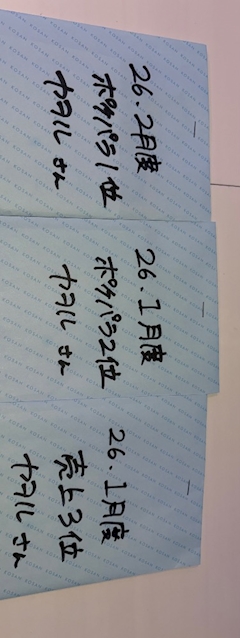 26.2月度
ポケパラ1位
ナコルさん
26.1月度
ポケパラ2位
ナコルさん
26.1月度
売上3位
ナコルさん